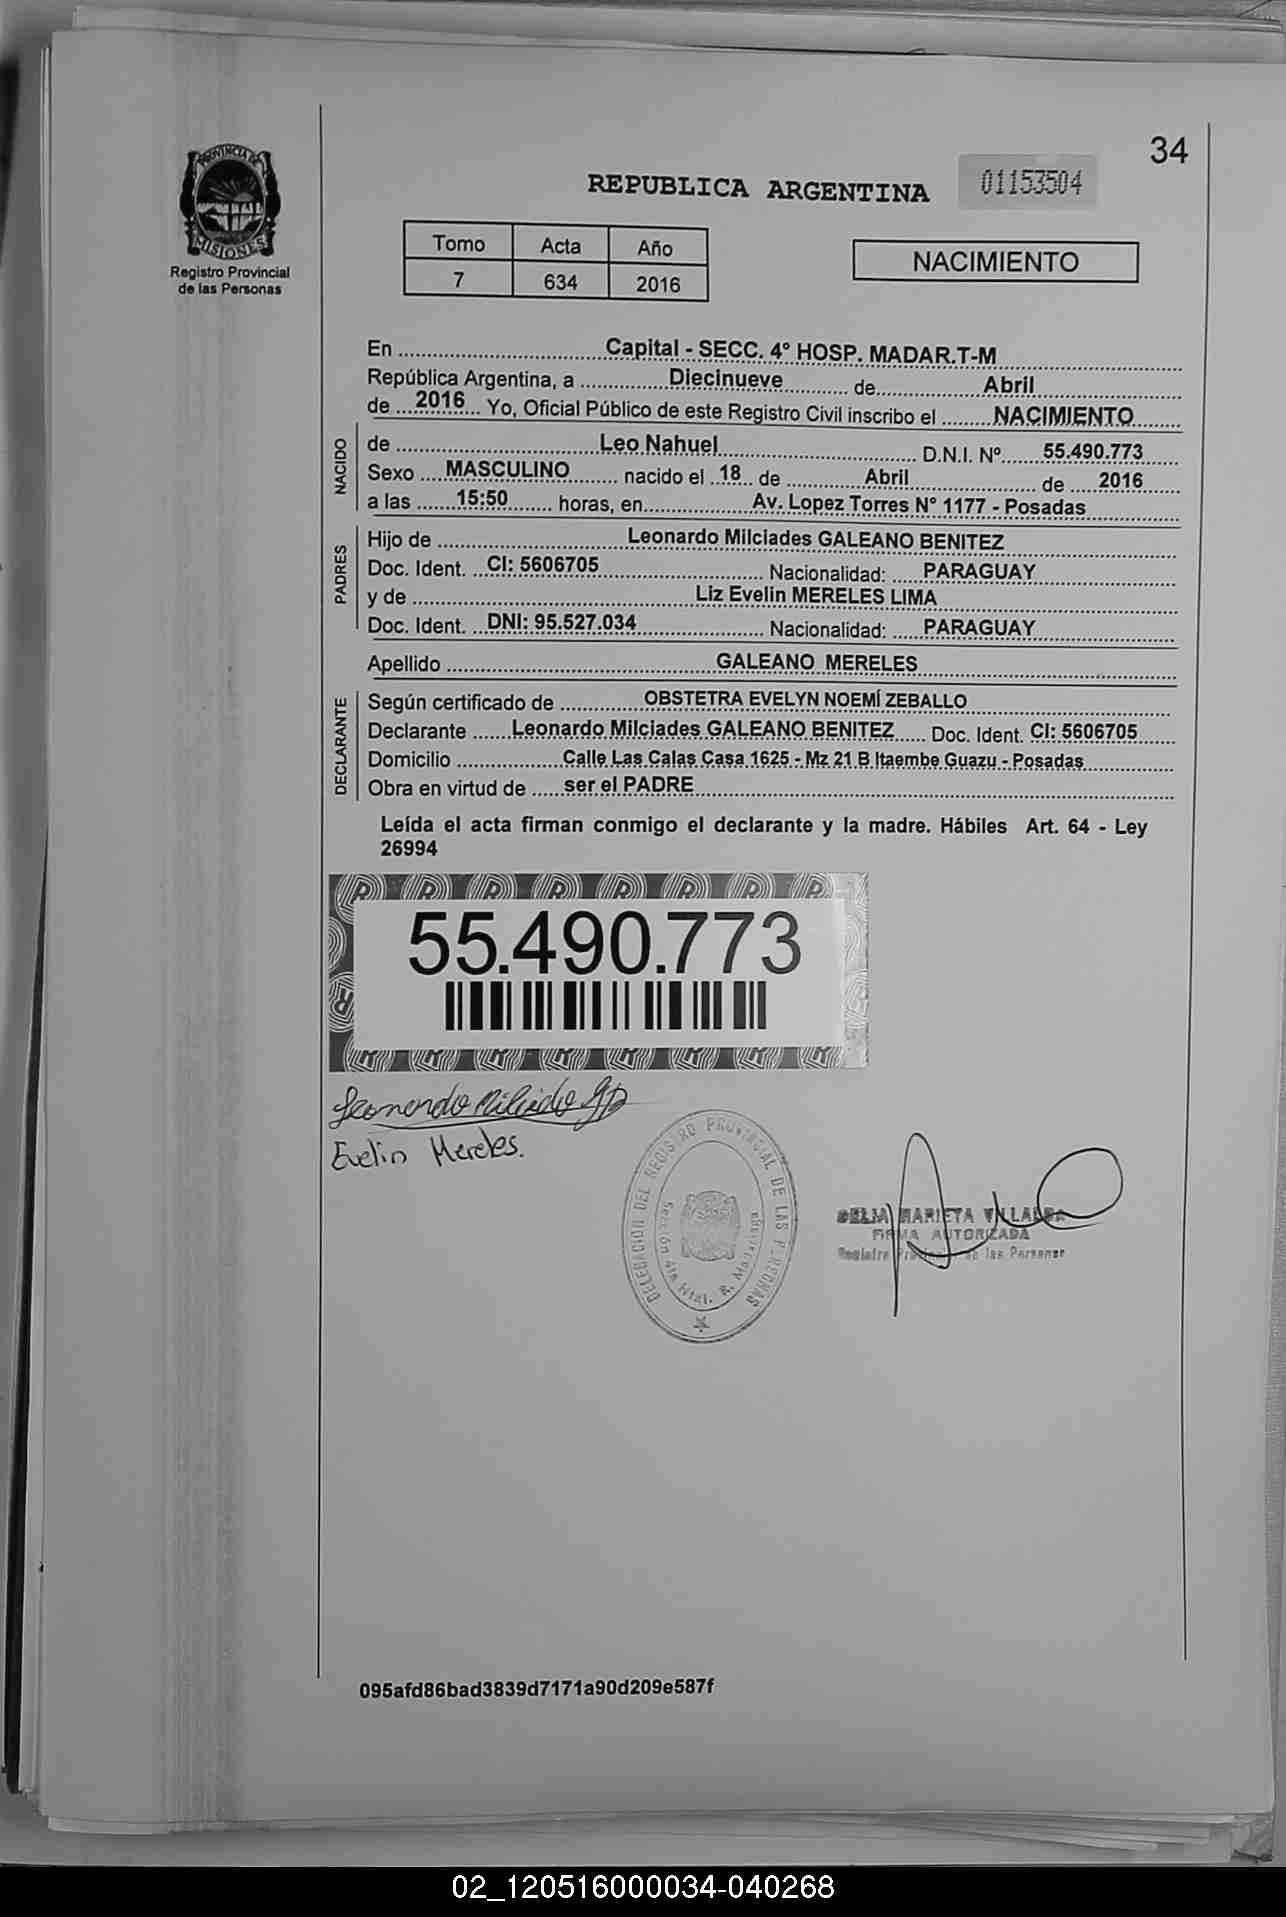 34
PROVINCIA DE
MISIONES
Registro Provincial
de las Personas
REPUBLICA ARGENTINA
01153504
Tomo Acta Año
7 634 2016
NACIMIENTO
En Capital - SECC. 4º HOSP. MADAR.T-M
República Argentina, a Diecinueve de Abril
de 2016 Yo, Oficial Público de este Registro Civil inscribo el NACIMIENTO
NACIDO
de Leo Nahuel D.N.I. Nº 55.490.773
Sexo MASCULINO nacido el 18 de Abril de 2016
a las 15:50 horas, en Av. Lopez Torres N° 1177 - Posadas
PADRES
Hijo de Leonardo Milciades GALEANO BENITEZ
Doc. Ident. CI: 5606705 Nacionalidad: PARAGUAY
y de Liz Evelin MERELES LIMA
Doc. Ident. DNI: 95.527.034 Nacionalidad: PARAGUAY
Apellido GALEANO MERELES
DECLARANTE
Según certificado de OBSTETRA EVELYN NOEMÍ ZEBALLO
Declarante Leonardo Milciades GALEANO BENITEZ Doc. Ident. CI: 5606705
Domicilio Calle Las Calas Casa 1625 - Mz 21 B Itaembe Guazu - Posadas
Obra en virtud de ser el PADRE
Leída el acta firman conmigo el declarante y la madre. Hábiles Art. 64 - Ley
26994
55.490.773
Evelin Mereles.
DELEGACION DEL REGISTRO PROVINCIAL DE LAS PERSONAS
Sección 4ta Htal. R. Madariaga
DELIA MARIETA VILLALBA
FIRMA AUTORIZADA
Registro Provincial de las Personas
095afd86bad3839d7171a90d209e587f
02_120516000034-040268